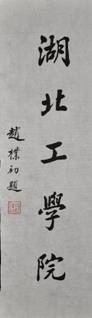 湖北工學院
趙樸初題